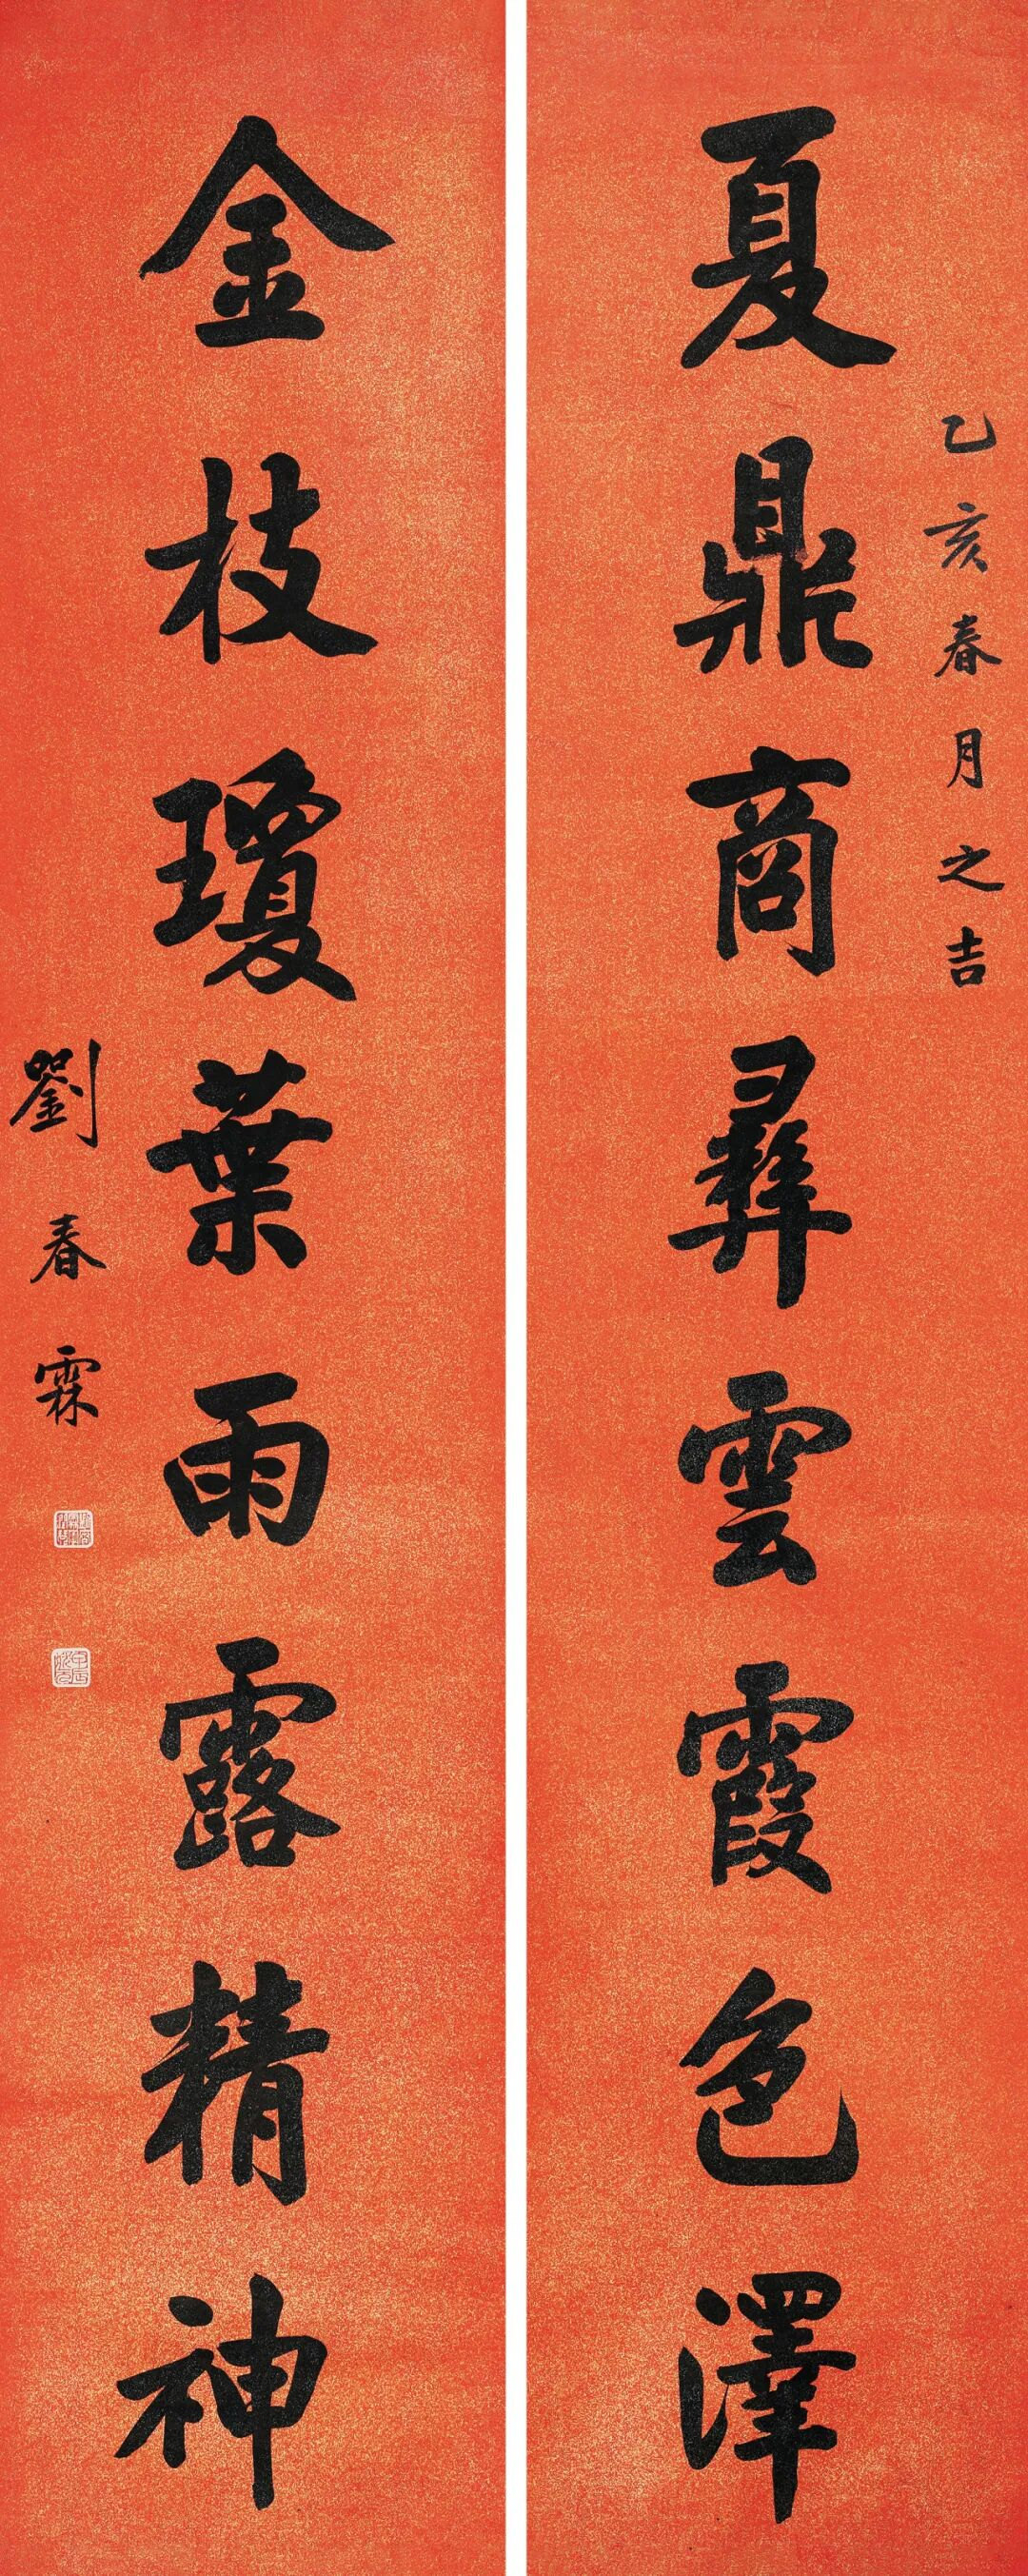 乙亥春月之吉
夏鼎商彝雲霞色澤
金枝瓊葉雨露精神
劉春霖